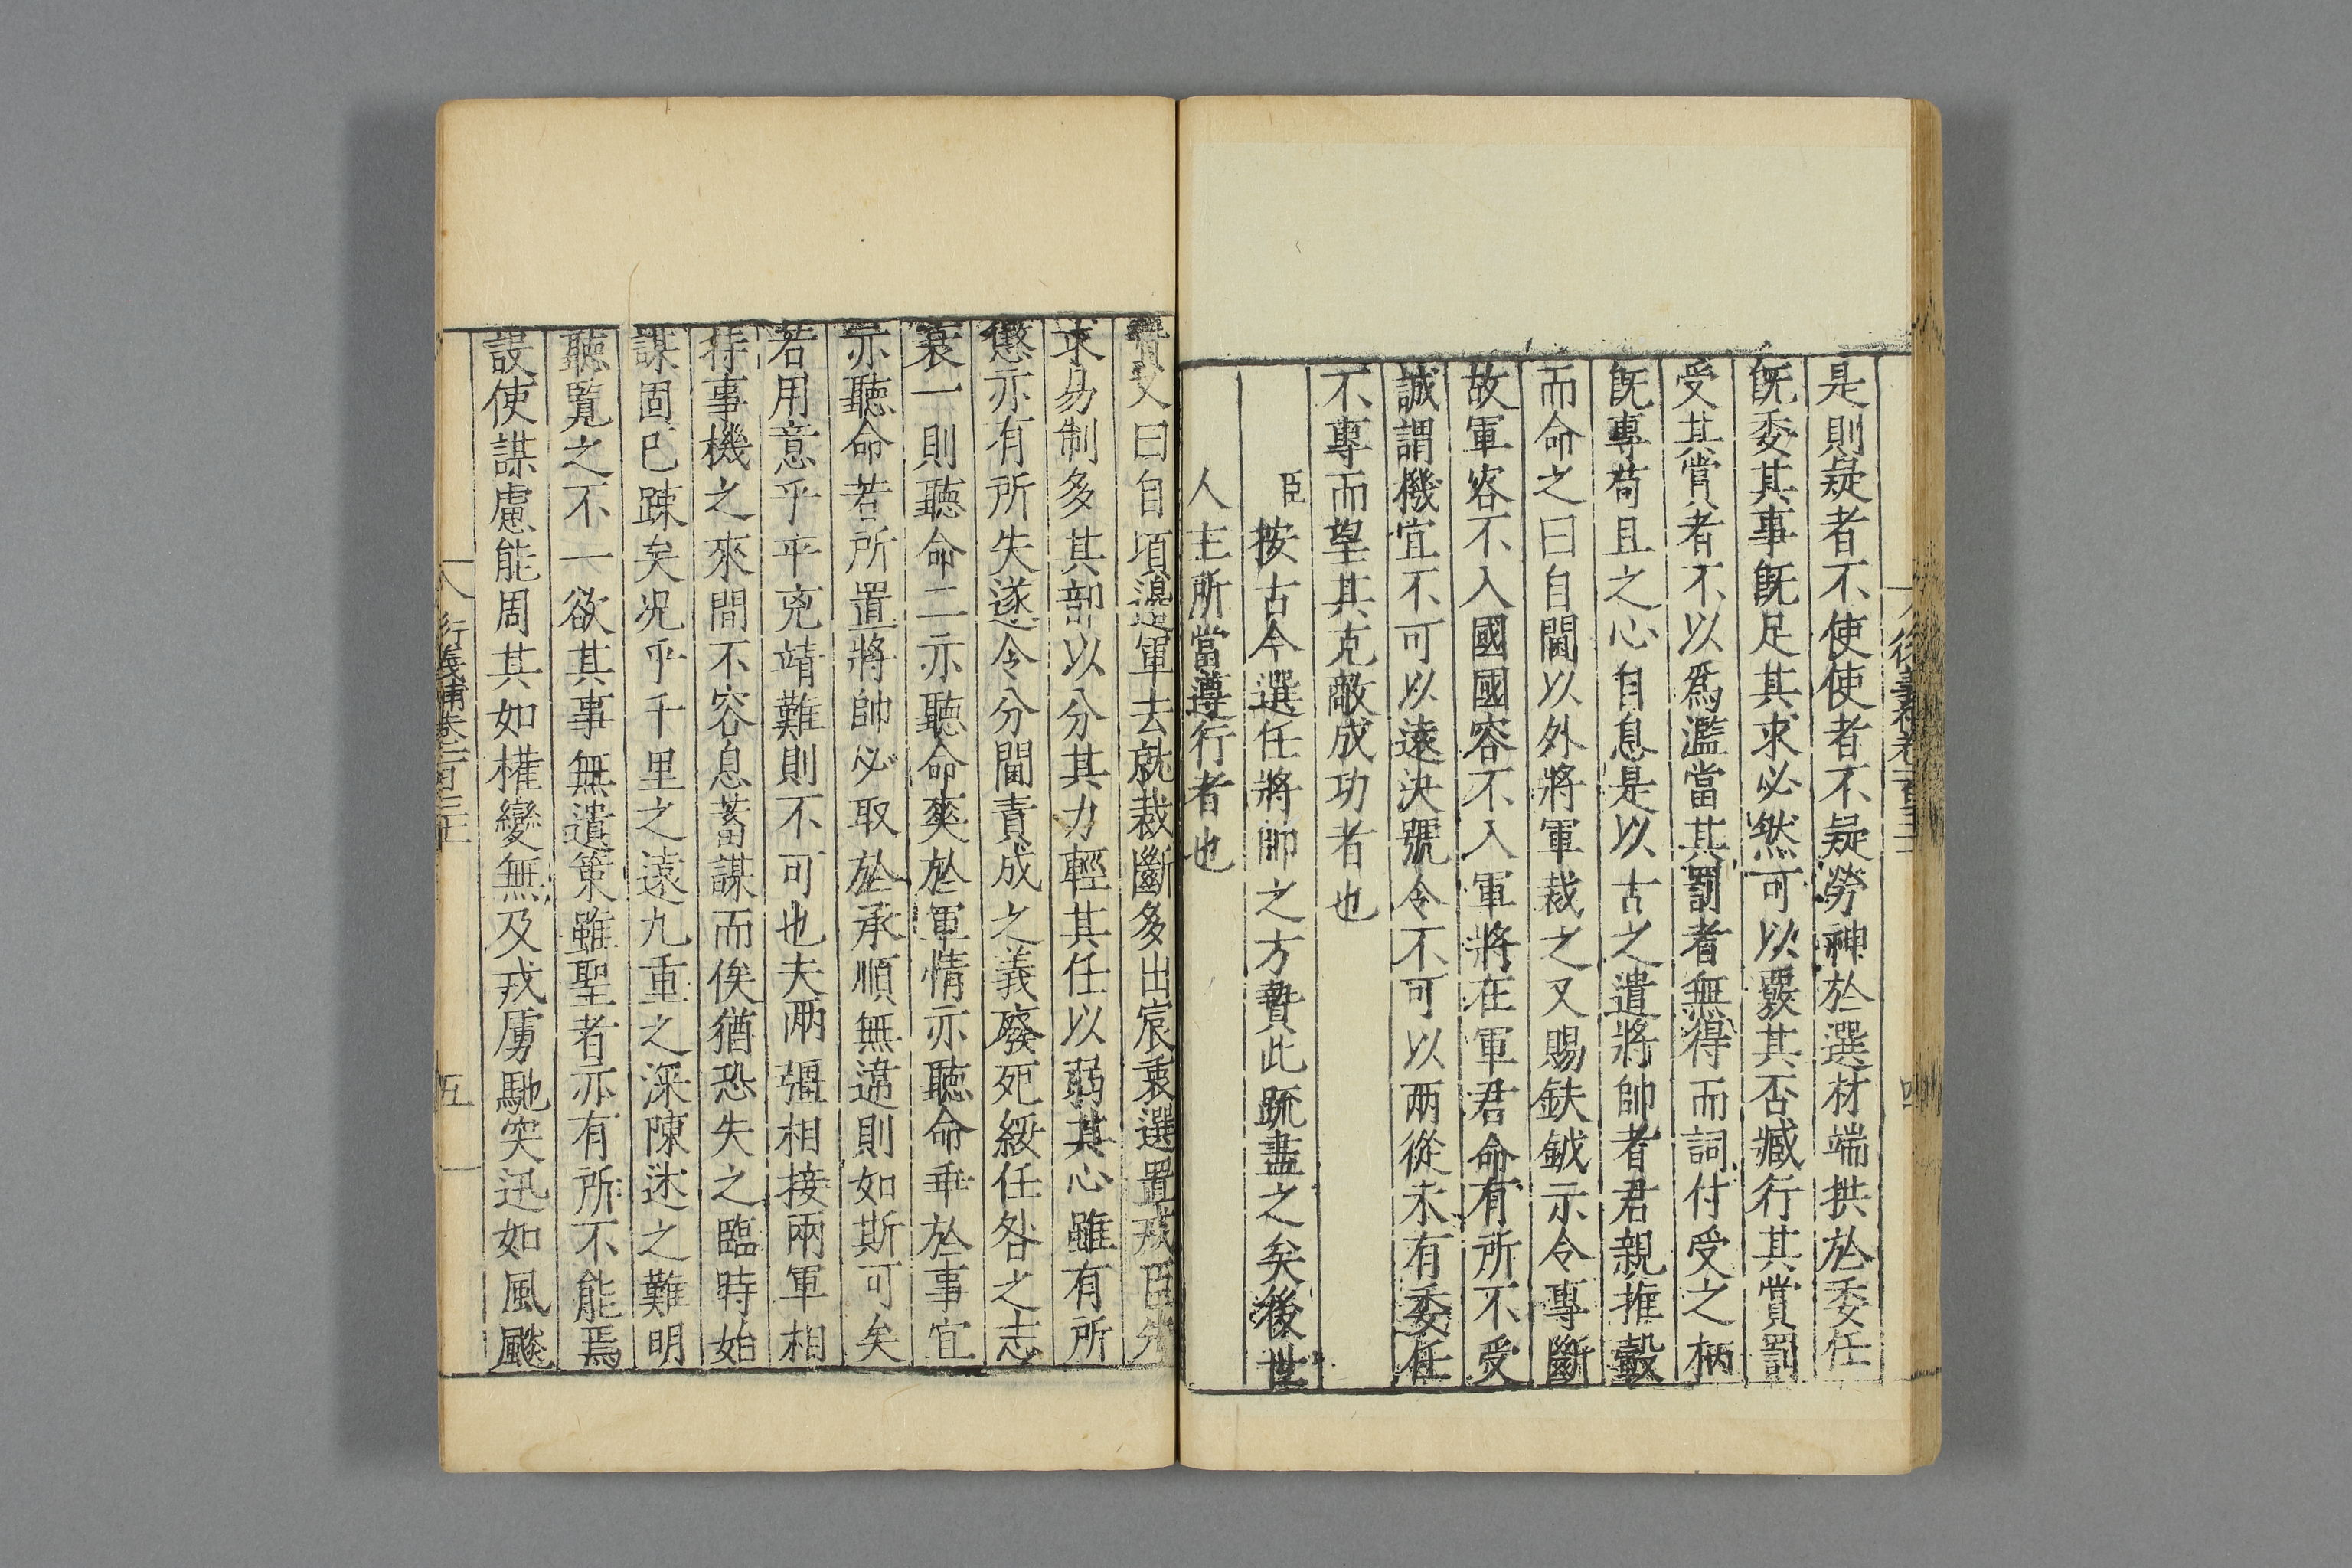 是則疑者不使使者不疑勞神於選材端拱於委任
旣委其事旣足其求必然可以覈其否臧行其賞罰
受其賞者不以爲濫當其罰者無得而詞付受之柄
旣專苟且之心自息是以古之遣將帥者君親推轂
而命之曰自閫以外將軍裁之又賜鈇鉞示令專斷
故軍容不入國國容不入軍將在軍君命有所不受
誠謂機宜不可以遠決號令不可以兩從未有委任
不專而望其克敵成功者也
臣按古今選任將帥之方贄此疏盡之矣後世
人主所當遵行者也
贄又曰自頃邊軍去就裁斷多出宸衷選置戎臣先
求易制多其部以分其力輕其任以弱其心雖有所
懲亦有所失遂令分閫責成之義廢死綏任咎之志
衰一則聽命二亦聽命爽於軍情亦聽命乖於事宜
亦聽命若所置將帥必取於承順無違則如斯可矣
若用意乎平兇靖難則不可也夫兩彊相接兩軍相
持事機之來間不容息蓄謀而俟猶恐失之臨時始
謀固已踈矣況乎千里之遠九重之深陳述之難明
聽覽之不一欲其事無遺策雖聖者亦有所不能焉
設使謀慮能周其如權變無及戎虜馳突迅如風飈
行義補卷一百三十
五